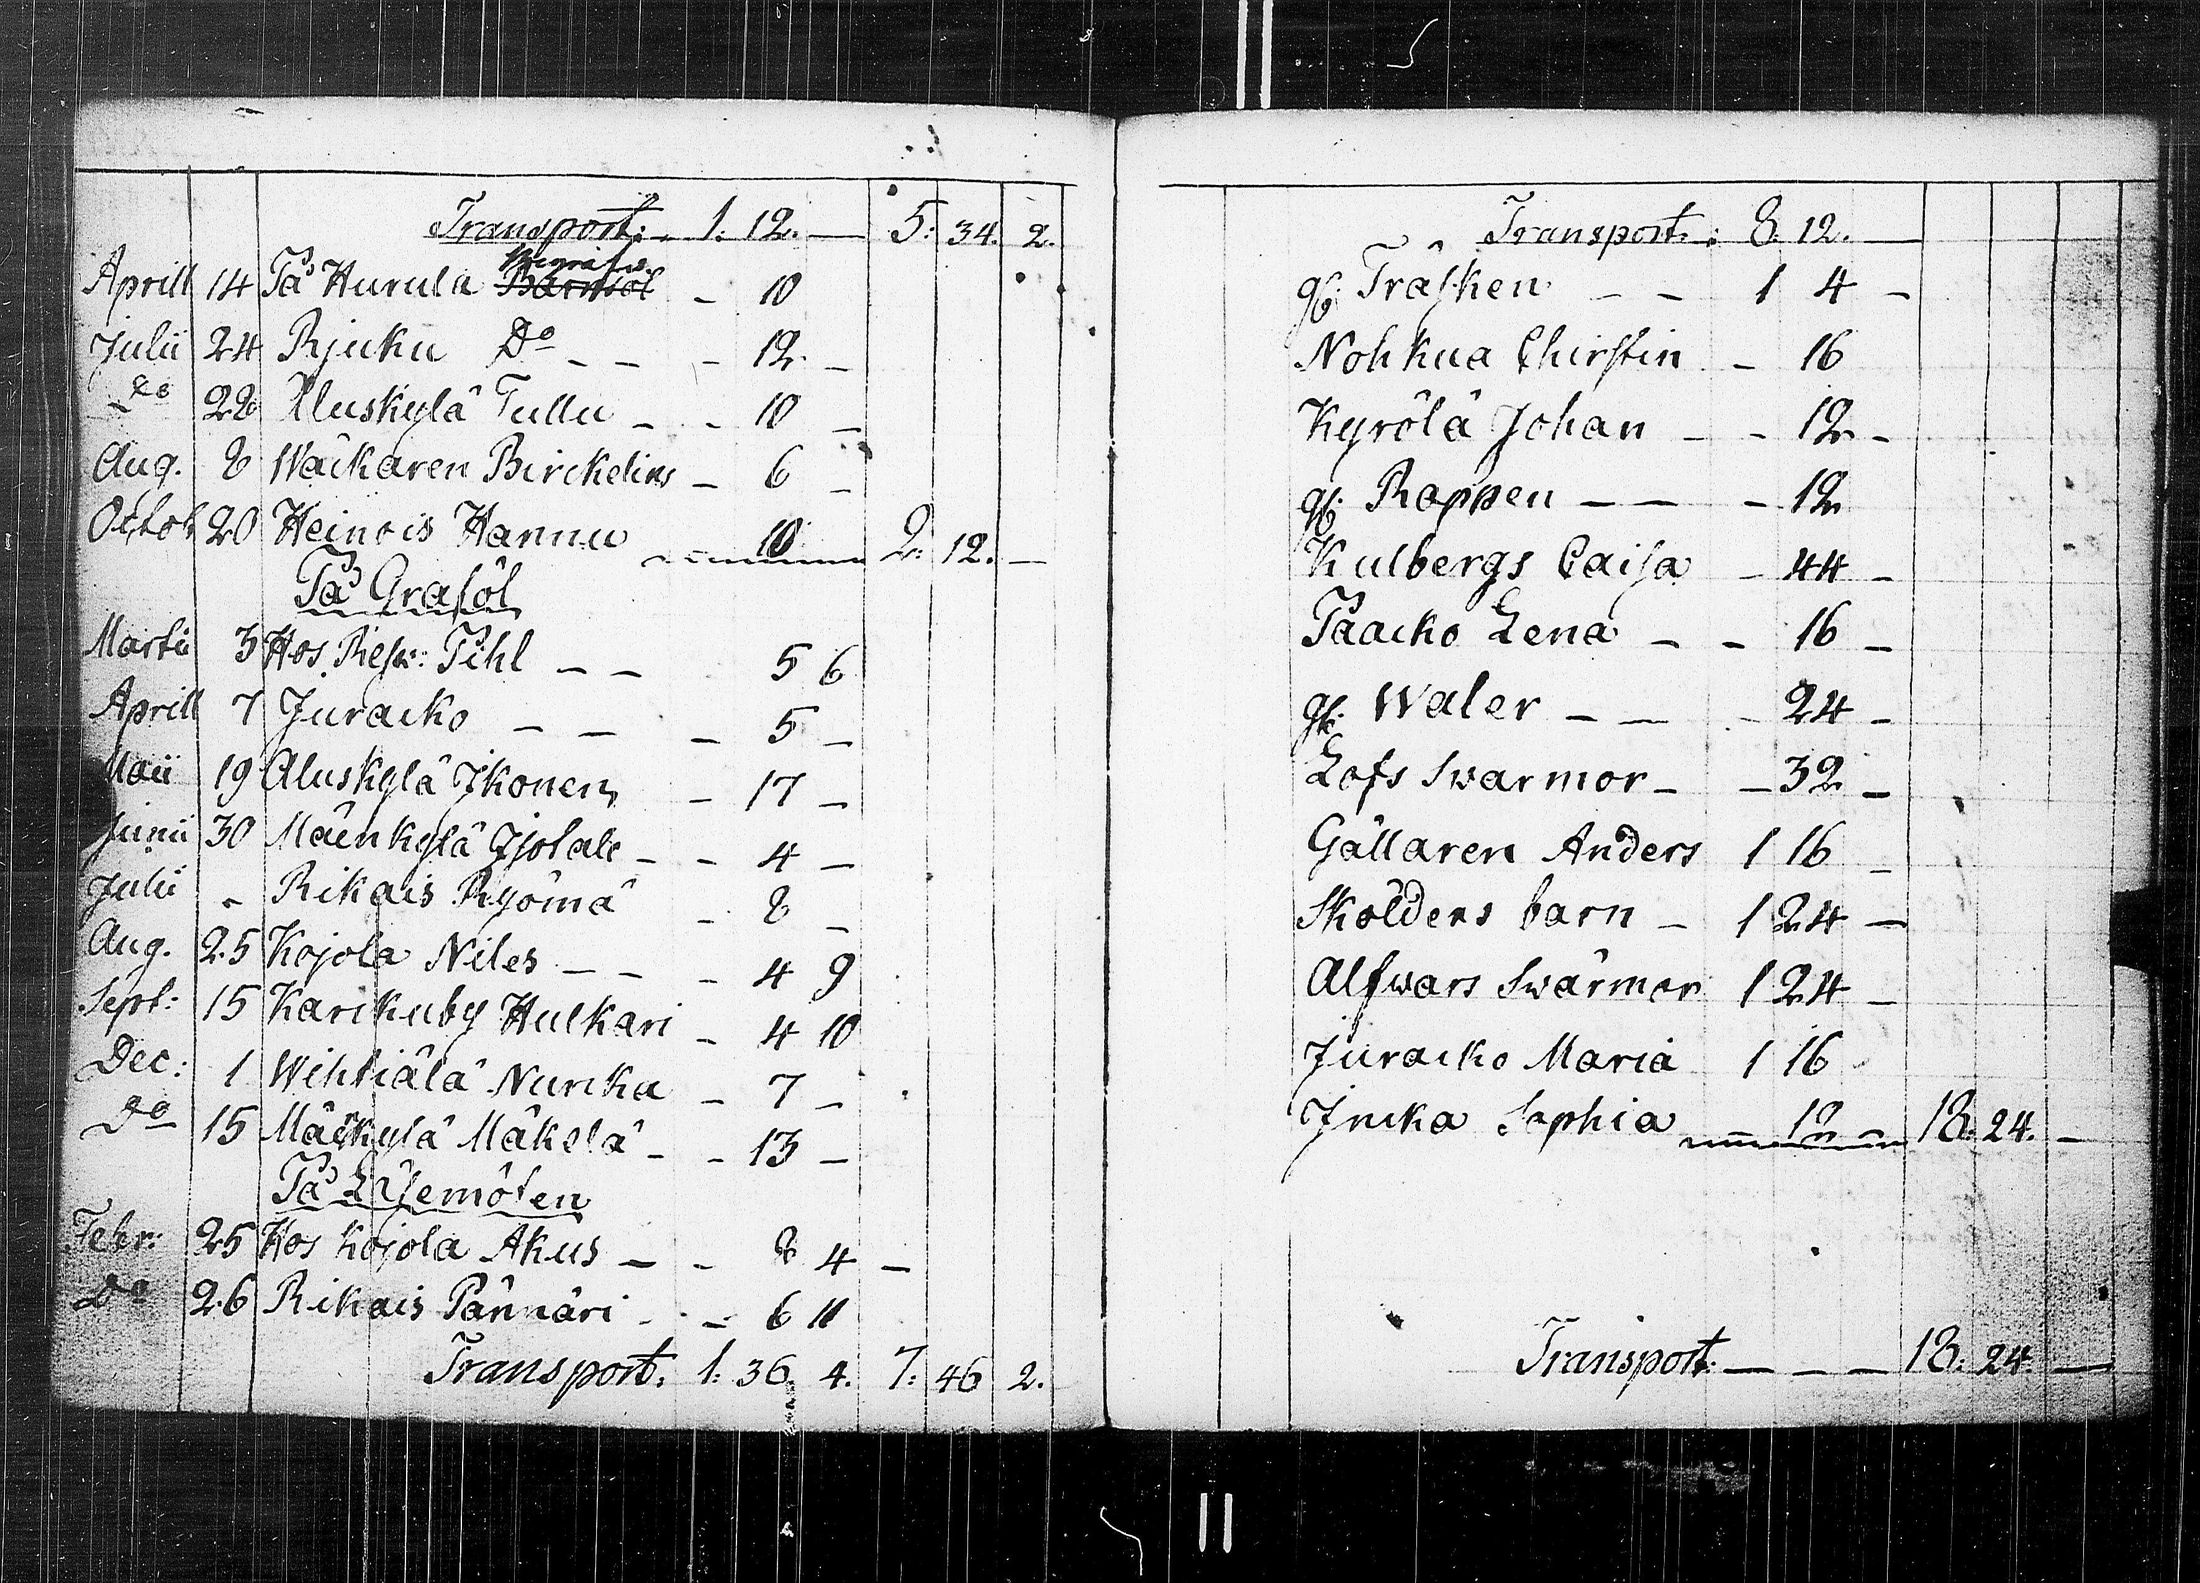 Transport: 1: 12. — 5: 34. 2.
Aprill 14 På Hurula Barnsöl - 10
Julii 24 Rjuku Do - - - 12 -
Do 22 Aluskylä Tullu - - 10 -
Aug. 8 Wäikären Birckelins - 6 -
Octob 20 Heinois Hannu 10 2: 12. —
På Graföl
Martii 3 Hos Resp: Pihl - - 5 6
Aprill 7 Juracko - - - 5 -
Maii 19 Aluskylä Ikonen - 17 -
Junii 30 Mäenkylä Isotalo - - 4 -
Julii - Rikais Ryömä - 8 -
Aug. 25 Kojola Niles - - - 4 9
Sept: 15 Karikuby Hulkari - 4 10
Dec: 1 Wihtiälä Nurcka - 7 -
Do 15 Mäekylä Mäkelä - - 13 -
På Läsemöten
Febr: 25 Hos Kojola Akus - - 8 4 -
Do 26 Rikais Pännäri - - 6 11
Transport. 1: 36 4. 7: 46 2.
Transport: 8: 12. —
gl. Träsken - - 1 4 -
Nohkua Chirstin - 16
Kyrölä Johan - - 12 -
gl. Roppen - - - 12
Kulbergs Caisa - 44 -
Paacko Lena - - 16 -
gl. Waler - - - 24 -
Lofs Swarmor - - 32 -
Gällaren Anders 1 16 -
Skölders barn - 1 24 -
Alfwars Swärmor 1 24 -
Juracko Maria 1 16
Jncka Sophia 12 - 18: 24. -
Transport: - - - 18: 24 —